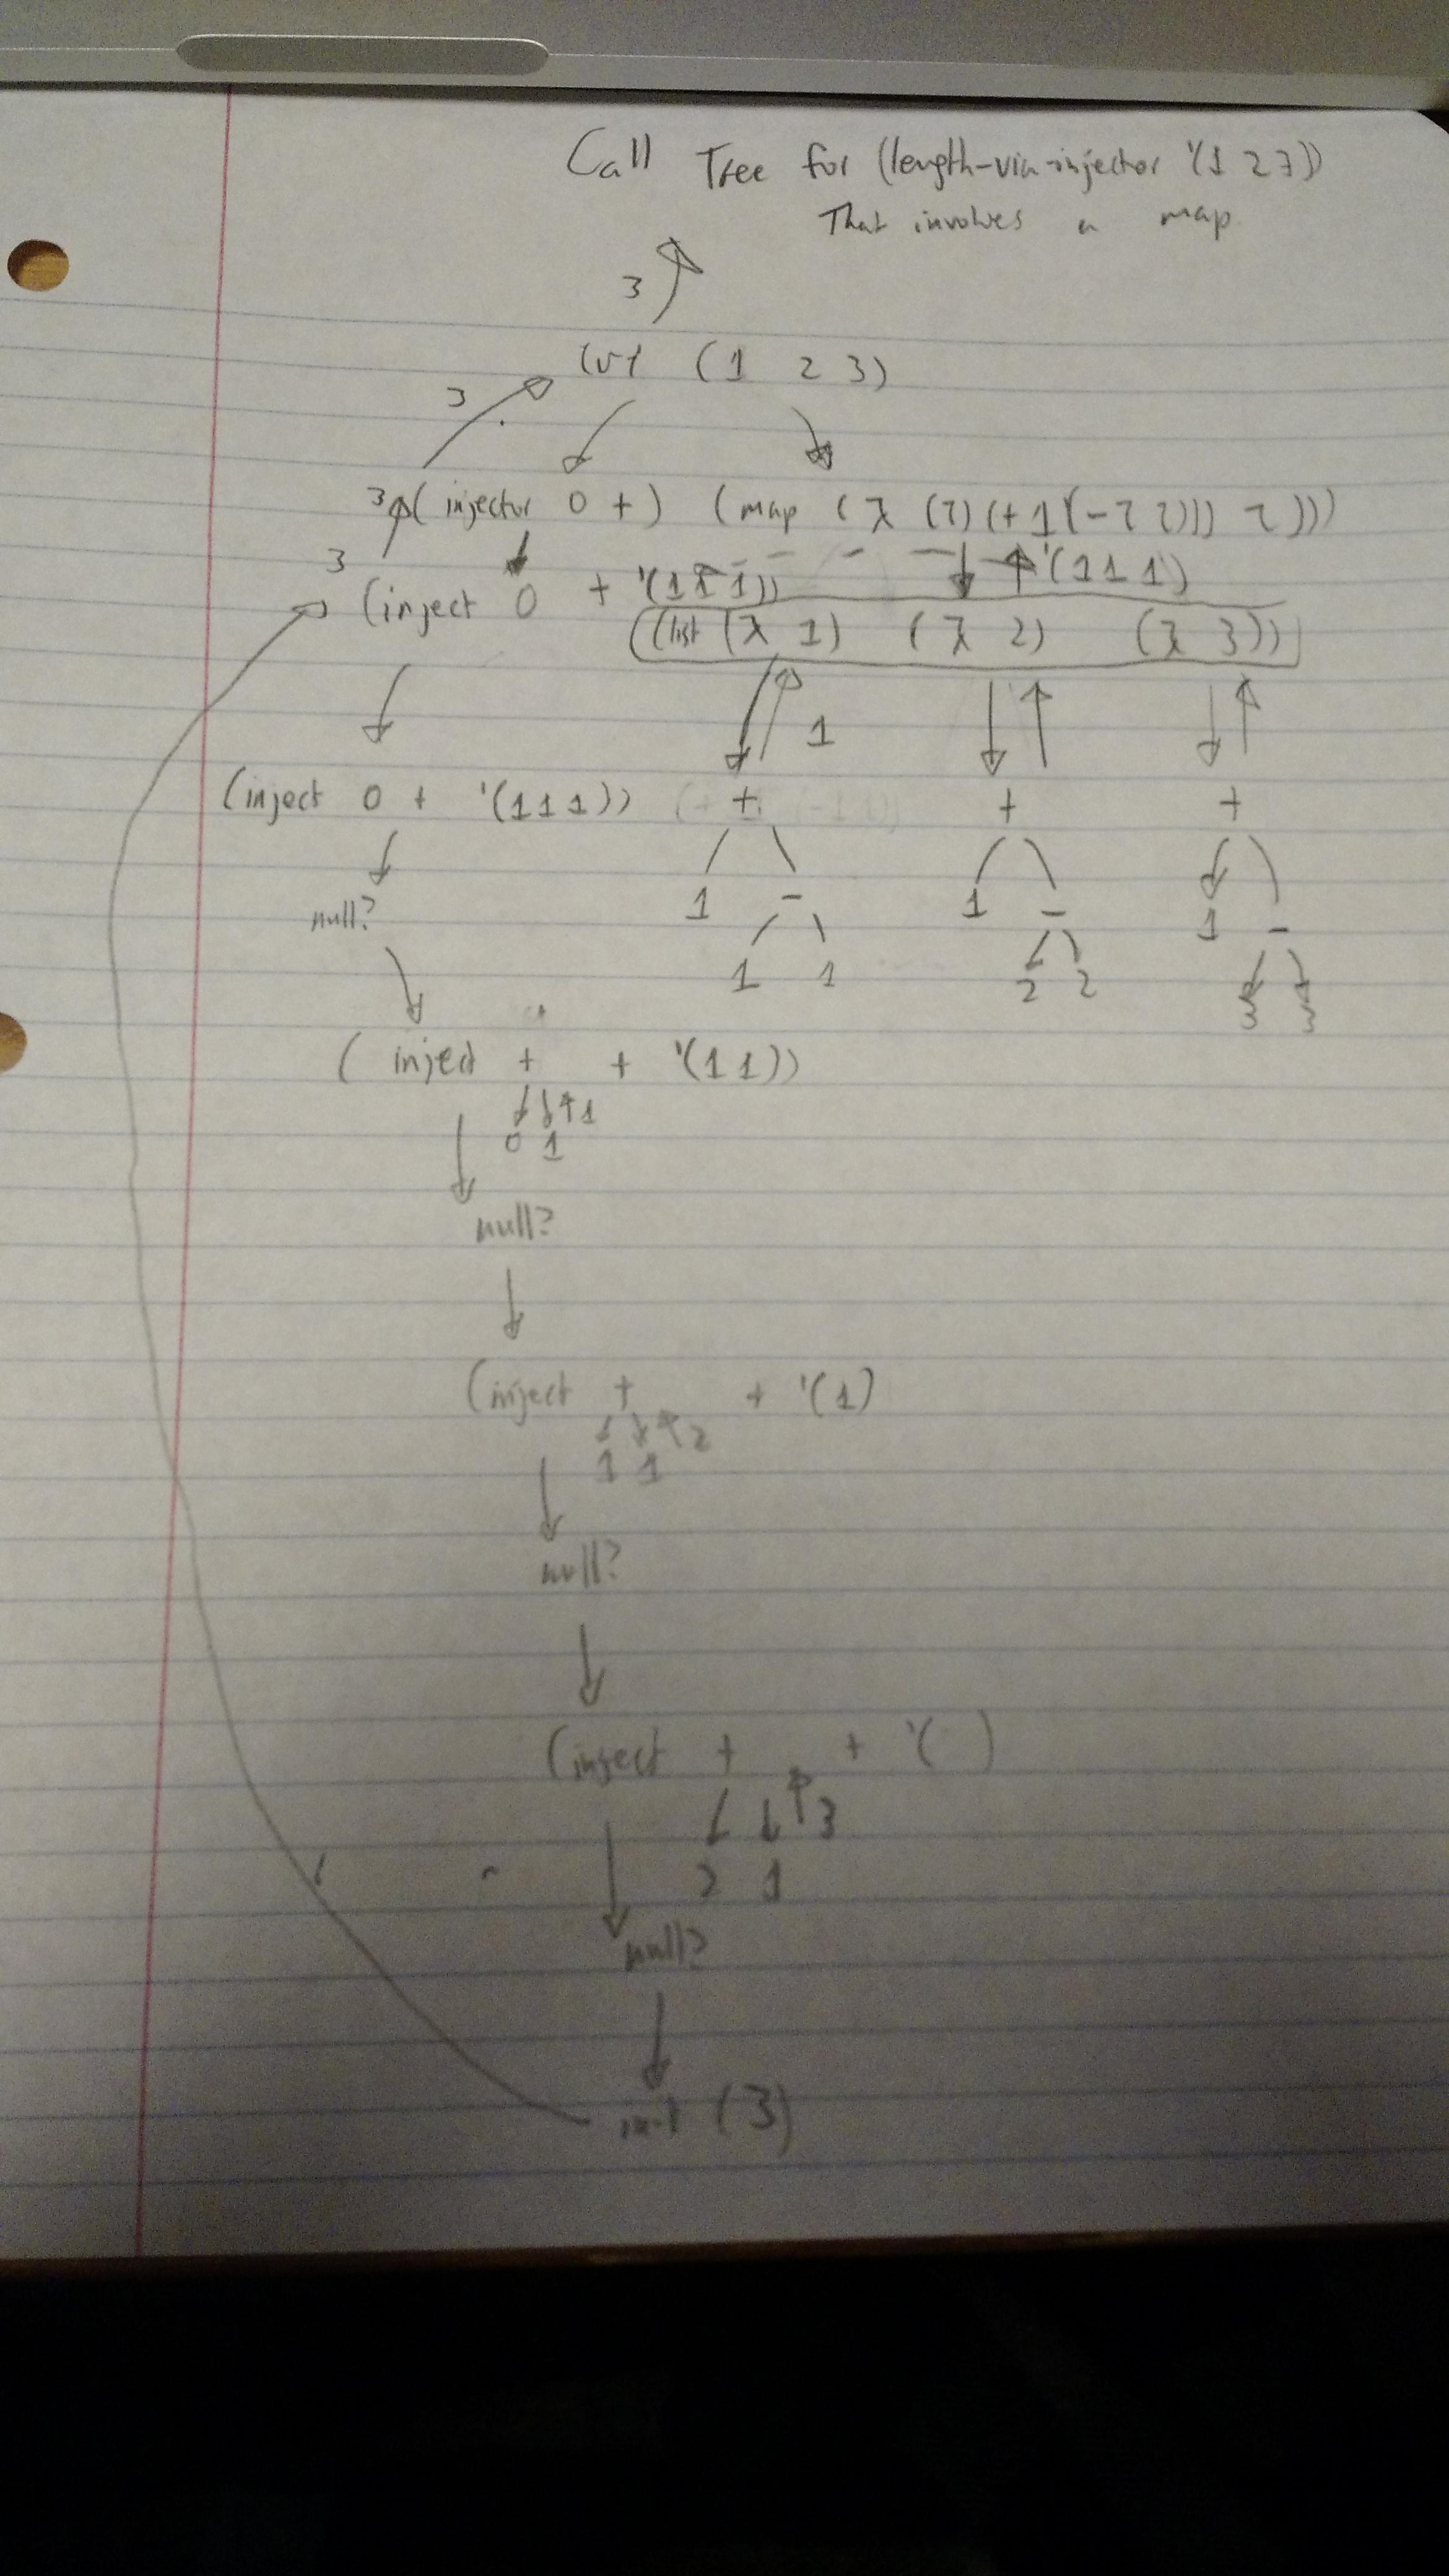 Call Tree for (length-via-injector '(1 2 3))
That involves a map
3
3
(1 2 3)
3 (injector 0 +) (map (λ (z) (+ 1 (- z z))) z)))
3
'(1 1 1)
(inject 0 + '(1 1 1))
((list (λ 1) (λ 2) (λ 3))
1
(inject 0 + '(1 1 1)) + + +
null? 1 - 1 - 1 -
1 1 2 2 3 3
( inject + + '(1 1))
1
0 1
null?
(inject + + '(1)
2
1 1
null?
(inject + + '( )
3
2 1
null?
init (3)